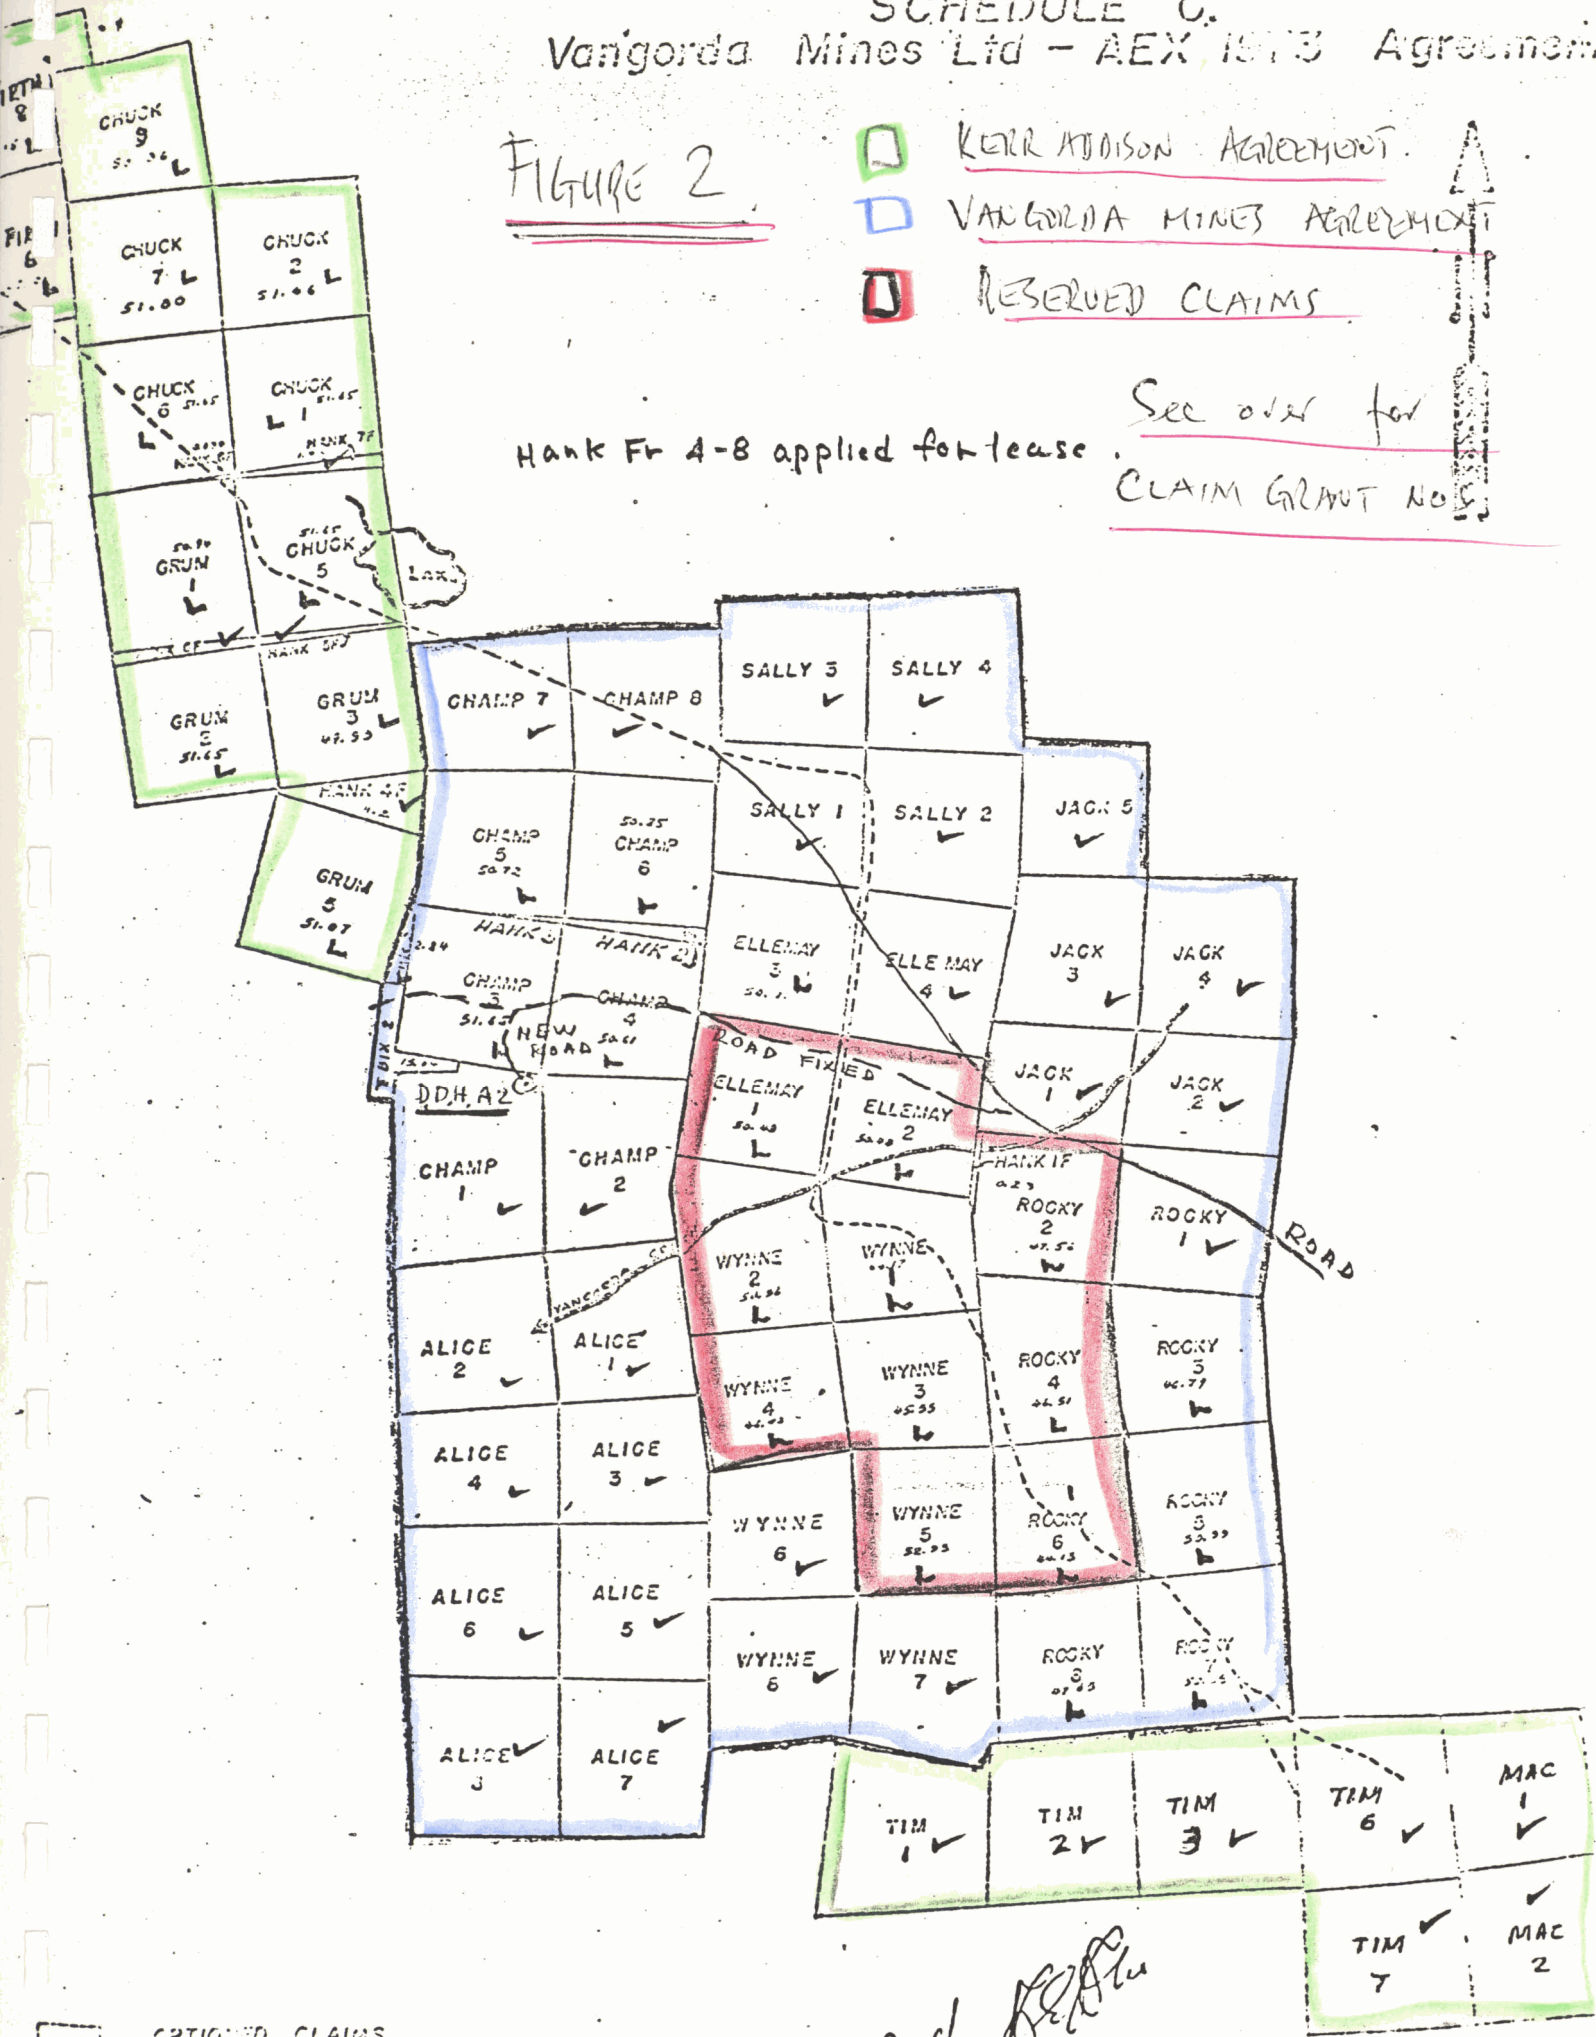 SCHEDULE C.
Vangorda Mines Ltd - AEX 1973 Agreement
FIGURE 2
KERR ADDISON AGREEMENT.
VANGORDA MINES AGREEMENT
RESERVED CLAIMS
See over for
CLAIM GRANT NOS
Hank Fr 4-8 applied for lease.
8
6
CHUCK
9
L
CHUCK
7 L
51.00
CHUCK
2 L
51.46
CHUCK
6 51.65
L
CHUCK
L 1 51.65
HANK 7F
50.94
GRUM
1
L
51.65
CHUCK
5
L
LAKE
HANK 5F
GRUM
2
51.65
L
GRUM
3 L
49.99
HANK 4F
GRUM
5
51.07
L
CHAMP 7
CHAMP 8
SALLY 3
SALLY 4
CHAMP
5
50.72
L
50.25
CHAMP
6
L
SALLY 1
SALLY 2
JACK 5
HANK 3
HANK 2
2.84
CHAMP
3
51.65
L
CHAMP
4
50.61
L
NEW
ROAD
ELLEMAY
3 L
ELLE MAY
4
JACK
3
JACK
4
D.D.H. A2
ROAD FIXED
ELLEMAY
1
L
ELLEMAY
2
L
JACK
1
JACK
2
HANK 1F
CHAMP
1
CHAMP
2
ROCKY
2
47.56
L
ROCKY
1
ROAD
WYNNE
2
L
WYNNE
1
L
ALICE
2
ALICE
1
WYNNE
4
L
WYNNE
3
L
ROCKY
4
46.51
L
ROCKY
3
46.79
L
ALICE
4
ALICE
3
WYNNE
6
WYNNE
5
52.93
L
ROCKY
6
L
ROCKY
L
ALICE
6
ALICE
5
WYNNE
WYNNE
7
ROCKY
8
L
ROCKY
7
L
ALICE
ALICE
7
TIM
1
TIM
2
TIM
3
TIM
6
MAC
1
TIM
7
MAC
2
OPTIONED CLAIMS